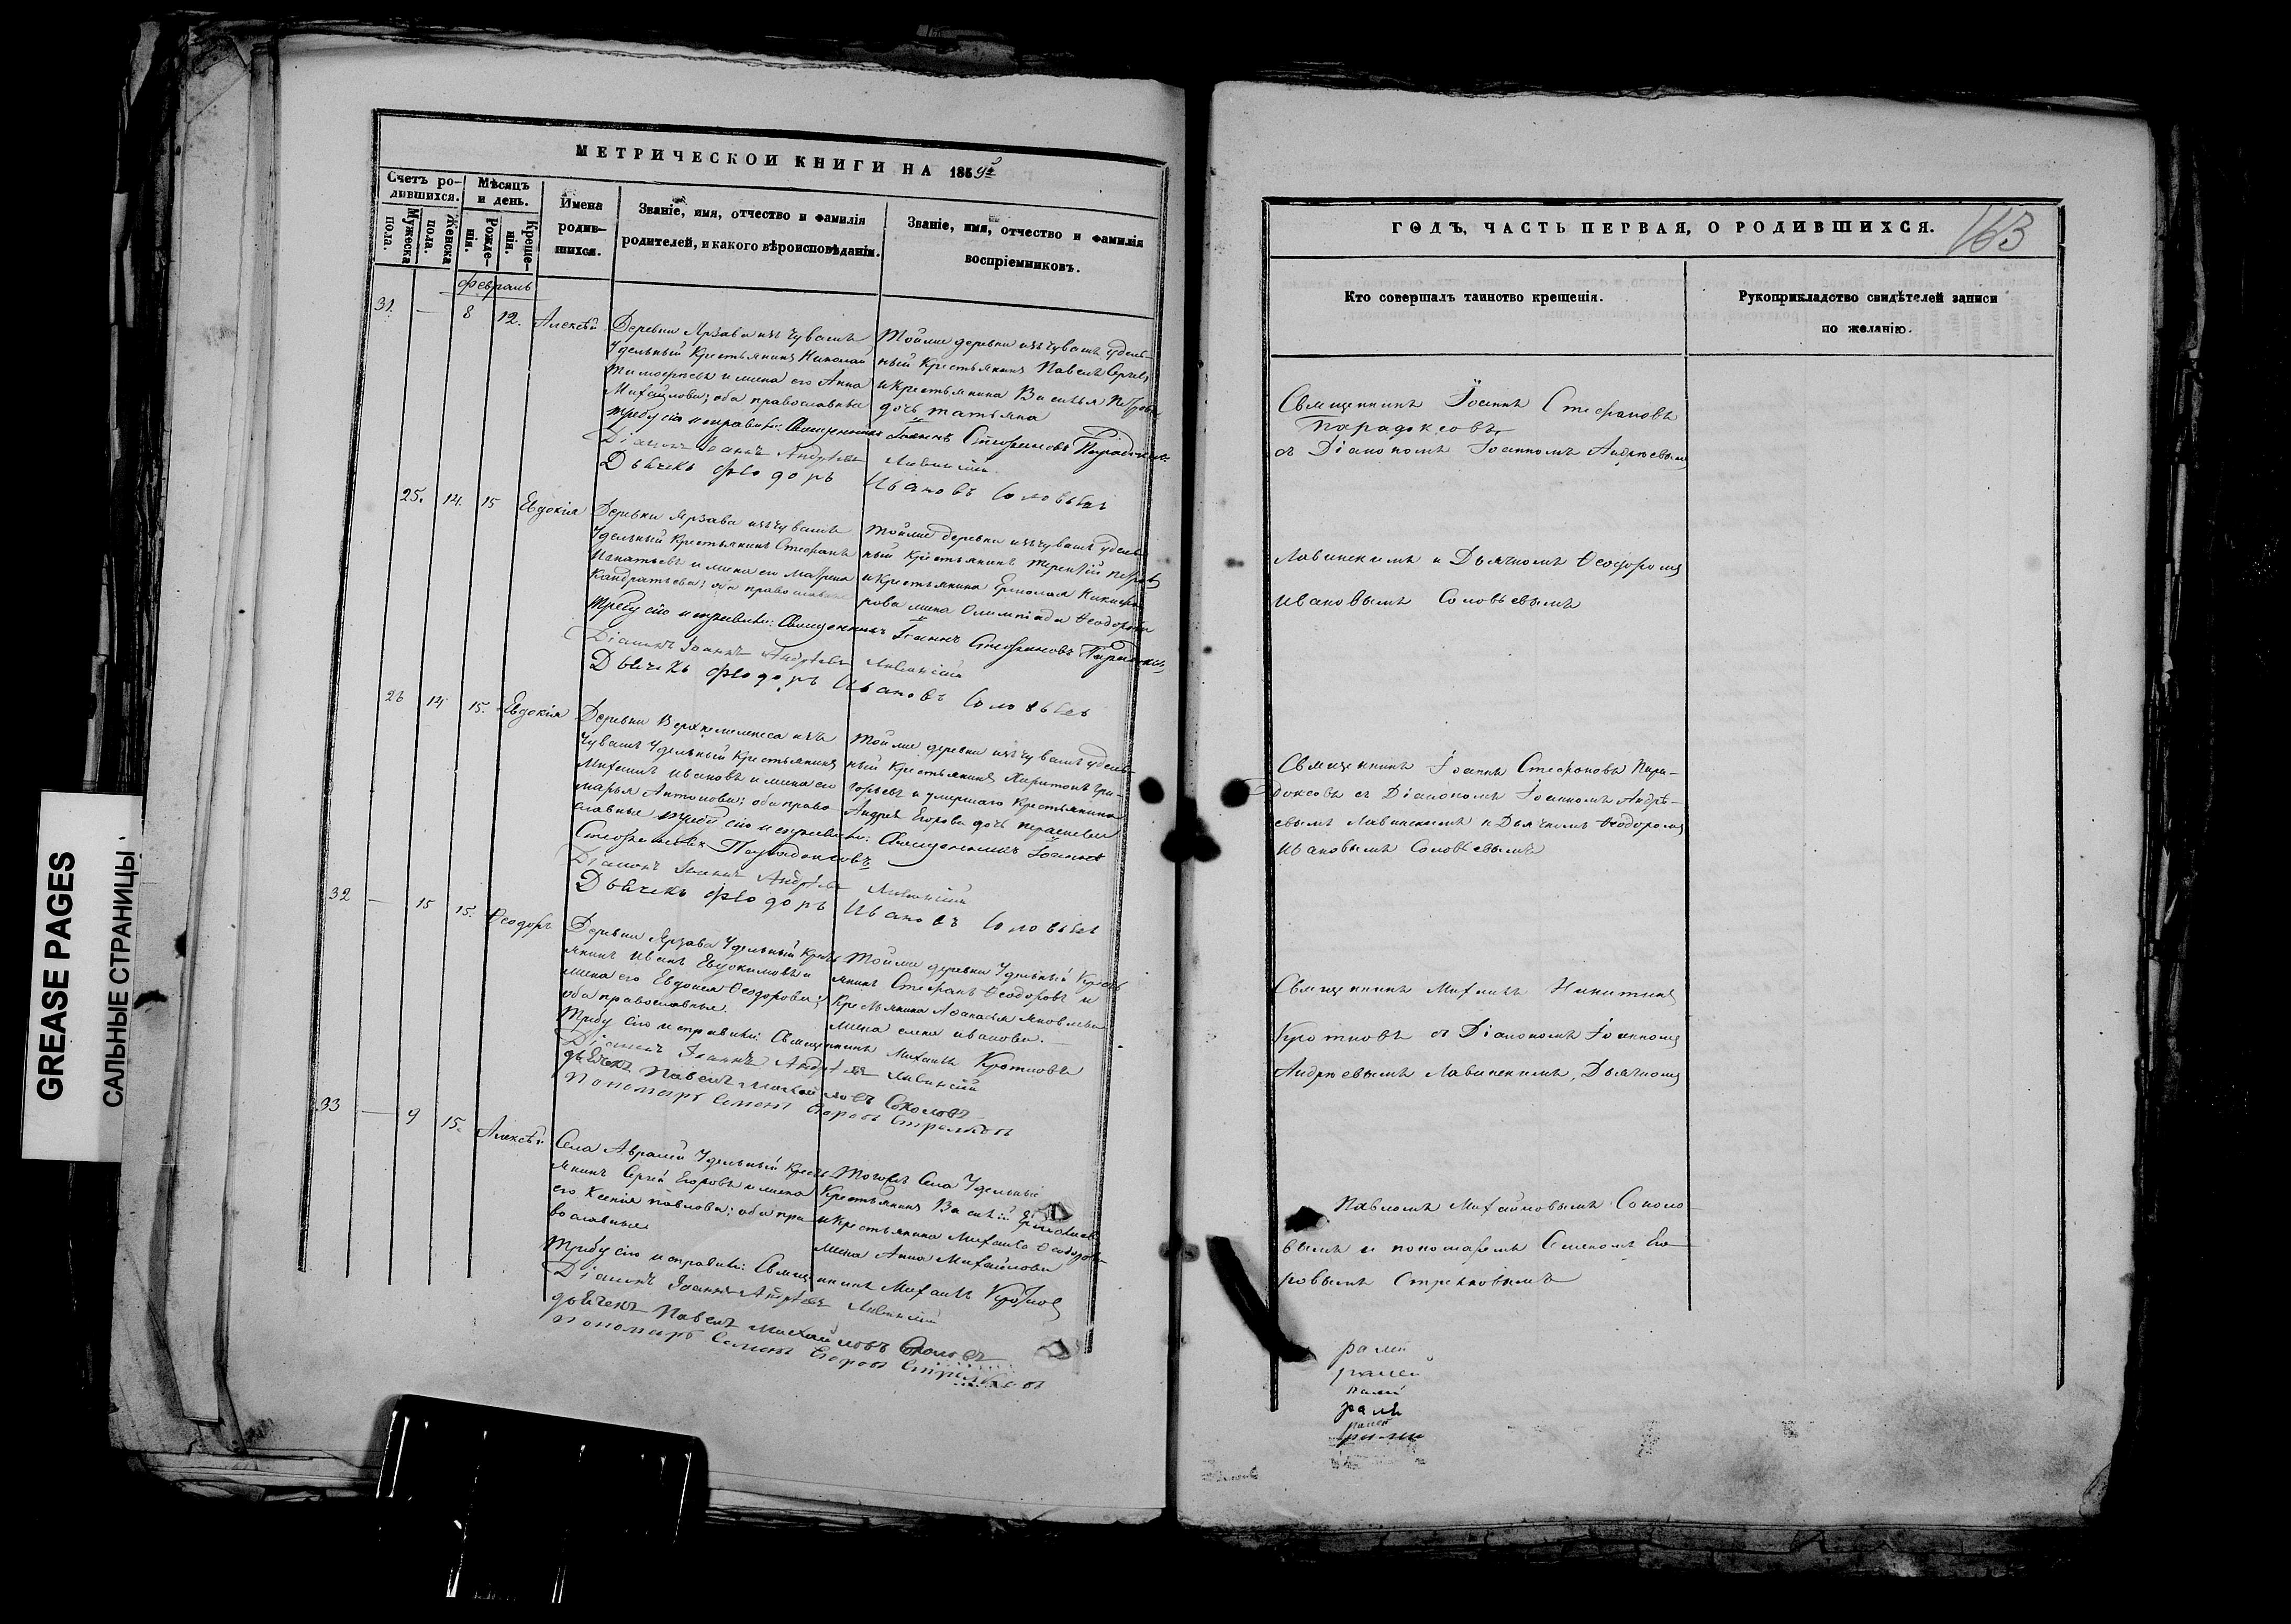 GREASE PAGES
САЛЬНЫЕ СТРАНИЦЫ
МЕТРИЧЕСКОЙ КНИГИ НА 1859й
Счетъ родившихся.
Мужеска пола.
Женска пола.
Мѣсяцъ и день.
Рожденія.
Крещенія.
Имена родившихся.
Званіе, имя, отчество и фамилія
родителей, и какого вѣроисповѣданія.
Званіе, имя, отчество и фамилія
воспріемниковъ.
Февраль
31. — 8 12. Алексѣй
Деревни Ярзава изъ чувашъ
Удельный Крестьянинъ Николай
Тимофеевъ и жена его Анна
Михайлова; оба православные
Тойже деревни изъ чувашъ удель-
ный Крестьянинъ Павелъ Сергеевъ
и крестьянина Василья Петрова
дочь Татьяна
требу сію исправили: Священникъ Іоаннъ Стефановъ Парадоксовъ
Діаконъ Іоаннъ Андрѣевъ Лавинскій
Дьячекъ Фӏодоръ Ивановъ Соловьевъ
25. 14. 15 Евдокія
Деревни Ярзава изъ чувашъ
Удельный Крестьянинъ Стефанъ
Игнатьевъ и жена его Матрена
Кандратьева; оба православные
Тойже деревни изъ чувашъ удель-
ный Крестьянинъ Терентій Петровъ
и крестьянина Ермолая Никифо-
рова жена Олимпіада Ѳеодорова
требу сію исправили: Священникъ Іоаннъ Стефановъ Парадоксовъ
Діаконъ Іоаннъ Андрѣевъ Лавинскій
Дьячекъ Феодоръ Ивановъ Соловьевъ
26 14 15. Евдокія
Деревни изъ
чувашъ Удельный Крестьянинъ
Михаилъ Ивановъ и жена его
Марья Антонова; оба право-
славные
Тойже деревни изъ чувашъ удель-
ный Крестьянинъ Харитонъ Гри-
горьевъ и умершаго Крестьянина
Андрея Егорова дочь
требу сію исправили: Священникъ Іоаннъ
Стефановъ Парадоксовъ
Діаконъ Іоаннъ Андрѣевъ Лавинскій
Дьячекъ Феодоръ Ивановъ Соловьевъ
32 — 15 15. Ѳеодоръ
Деревни Ярзава Удельный Кресть-
янинъ Иванъ Евдокимовъ и
жена его Евдокія Ѳеодорова;
оба православные.
Тойже деревни Удельный Кресть-
янинъ Стефанъ Ѳеодоровъ и
Крестьянина Аѳанасья Яковлева
жена Елена Иванова.
Требу сію исправили: Священникъ Михаилъ Кротковъ
Діаконъ Іоаннъ Андрѣевъ Лавинскій
дьячекъ Павелъ Михайловъ Соколовъ
Пономарь Семенъ Егоровъ Стрелковъ
33 — 9 15. Алексѣй
Села Абрамей Удельный Кресть-
янинъ Сергей Егоровъ и жена
его Ксенія Павлова; оба пра-
вославные
Тогоже Села Удельный
Крестьянинъ Василій
и крестьянина Михаила Ѳеодорова
жена Анна Михайлова
Требу сію исправили: Священникъ Михаилъ Кротковъ
Діаконъ Іоаннъ Андрѣевъ Лавинскій
дьячекъ Павелъ Михайловъ Соколовъ
Пономарь Семенъ Егоровъ Стрелковъ
ГОДЪ, ЧАСТЬ ПЕРВАЯ, О РОДИВШИХСЯ.
163
Кто совершалъ таинство крещенія.
Рукоприкладство свидѣтелей записи
по желанію.
Священникъ Іоаннъ Стефановъ
Парадоксовъ
съ Діакономъ Іоанномъ Андреевымъ
Лавинскимъ и Дьячкомъ Ѳеодоромъ
Ивановымъ Соловьевымъ
Священникъ Іоаннъ Стефановъ Пара-
доксовъ съ Діакономъ Іоанномъ Андрѣ-
евымъ Лавинскимъ и Дьячкомъ Ѳеодоромъ
Ивановымъ Соловьевымъ
Священникъ Михаилъ Никитинъ
Кротковъ съ Діакономъ Іоанномъ
Андреевымъ Лавинскимъ, Дьячкомъ
Павломъ Михайловымъ Соколо-
вымъ и пономаремъ Семеномъ Его-
ровымъ Стрелковымъ